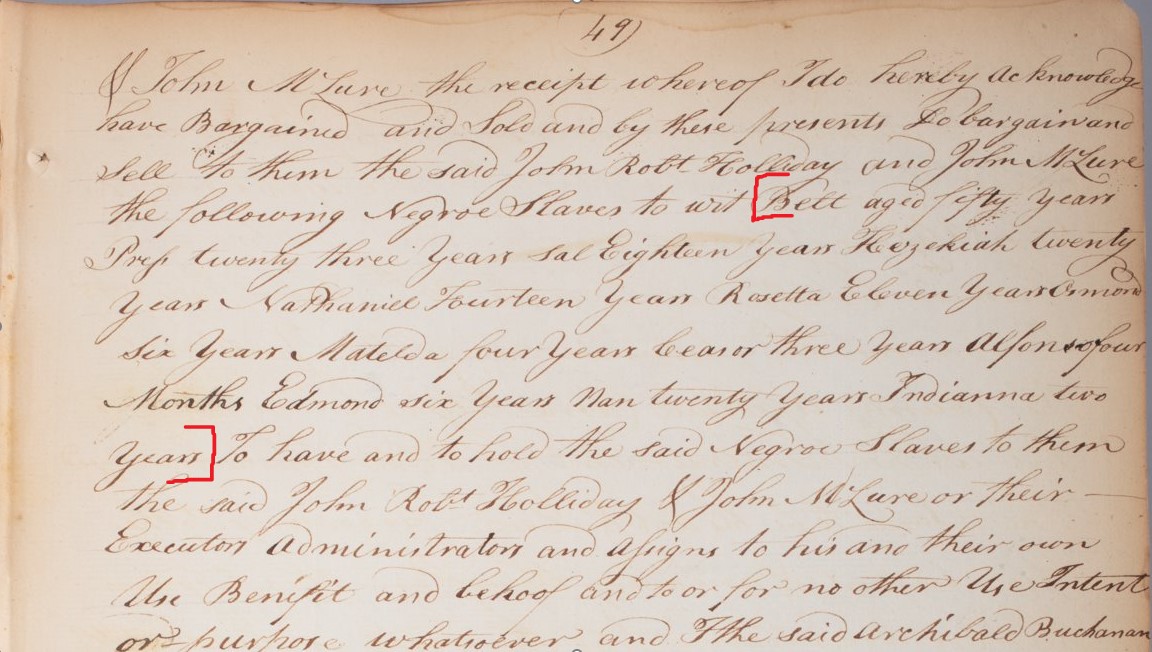 49)
& John McLure the receipt whereof I do hereby acknowledge
have Bargained and Sold and by these presents Do bargain and
sell to them the said John Robt Holliday and John McLure
the following Negroe Slaves to wit Bett aged fifty years
twenty three Years Sal Eighteen Years Hezekiah twenty
Years Nathaniel Fourteen Years Rosetta Eleven Years Ormond
six Years Matelda four Years Ceasor three Years Alfonso four
Months Edmond six Years Nan twenty Years Indianna two
Years To have and to hold the said Negroe Slaves to them
the said John Robt Holliday & John McLure or their
Executors Administrators and Assigns to his and their own
Use Benifit and behoof and to or for no other Use Intent
or purpose whatsoever and I the said Archibald Buchanan